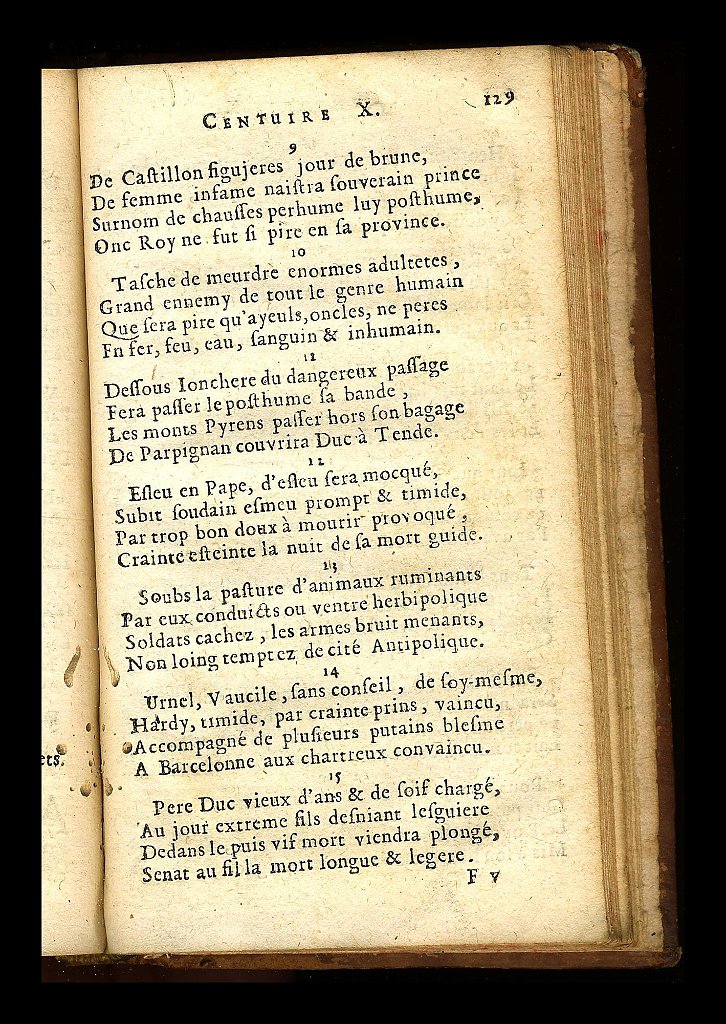 CENTUIRE X. 129
9
De Caſtillon figujeres jour de brune,
De femme infame naiſtra ſouverain prince
Surnom de chauſſes perhume luy poſthume,
Onc Roy ne fut ſi pire en ſa province.
10
Taſche de meurdre enormes adultetes,
Grand ennemy de tout le genre humain
Que ſera pire qu'ayeuls, oncles, ne peres
Fn fer, feu, eau, ſanguin & inhumain.
11
Deſſous Ionchere du dangereux paſſage
Fera paſſer le poſthume ſa bande,
Les monts Pyrens paſſer hors ſon bagage
De Parpignan couvrira Duc à Tende.
12
Eſleu en Pape, d'eſleu ſera mocqué,
Subit ſoudain eſmeu prompt & timide,
Par trop bon doux à mourir provoqué,
Crainte eſteinte la nuit de ſa mort guide.
13
Soubs la paſture d'animaux ruminants
Par eux conduicts ou ventre herbipolique
Soldats cachez, les armes bruit menants,
Non loing temptez de cité Antipolique.
14
Urnel, Vaucile, ſans conſeil, de ſoy-meſme,
Hardy, timide, par crainte prins, vaincu,
Accompagné de pluſieurs putains bleſme
A Barcelonne aux chartreux convaincu.
15
Pere Duc vieux d'ans & de ſoif chargé,
Au jour extreme fils deſniant leſguiere
Dedans le puis vif mort viendra plongé,
Senat au fil la mort longue & legere.
F v
ets.